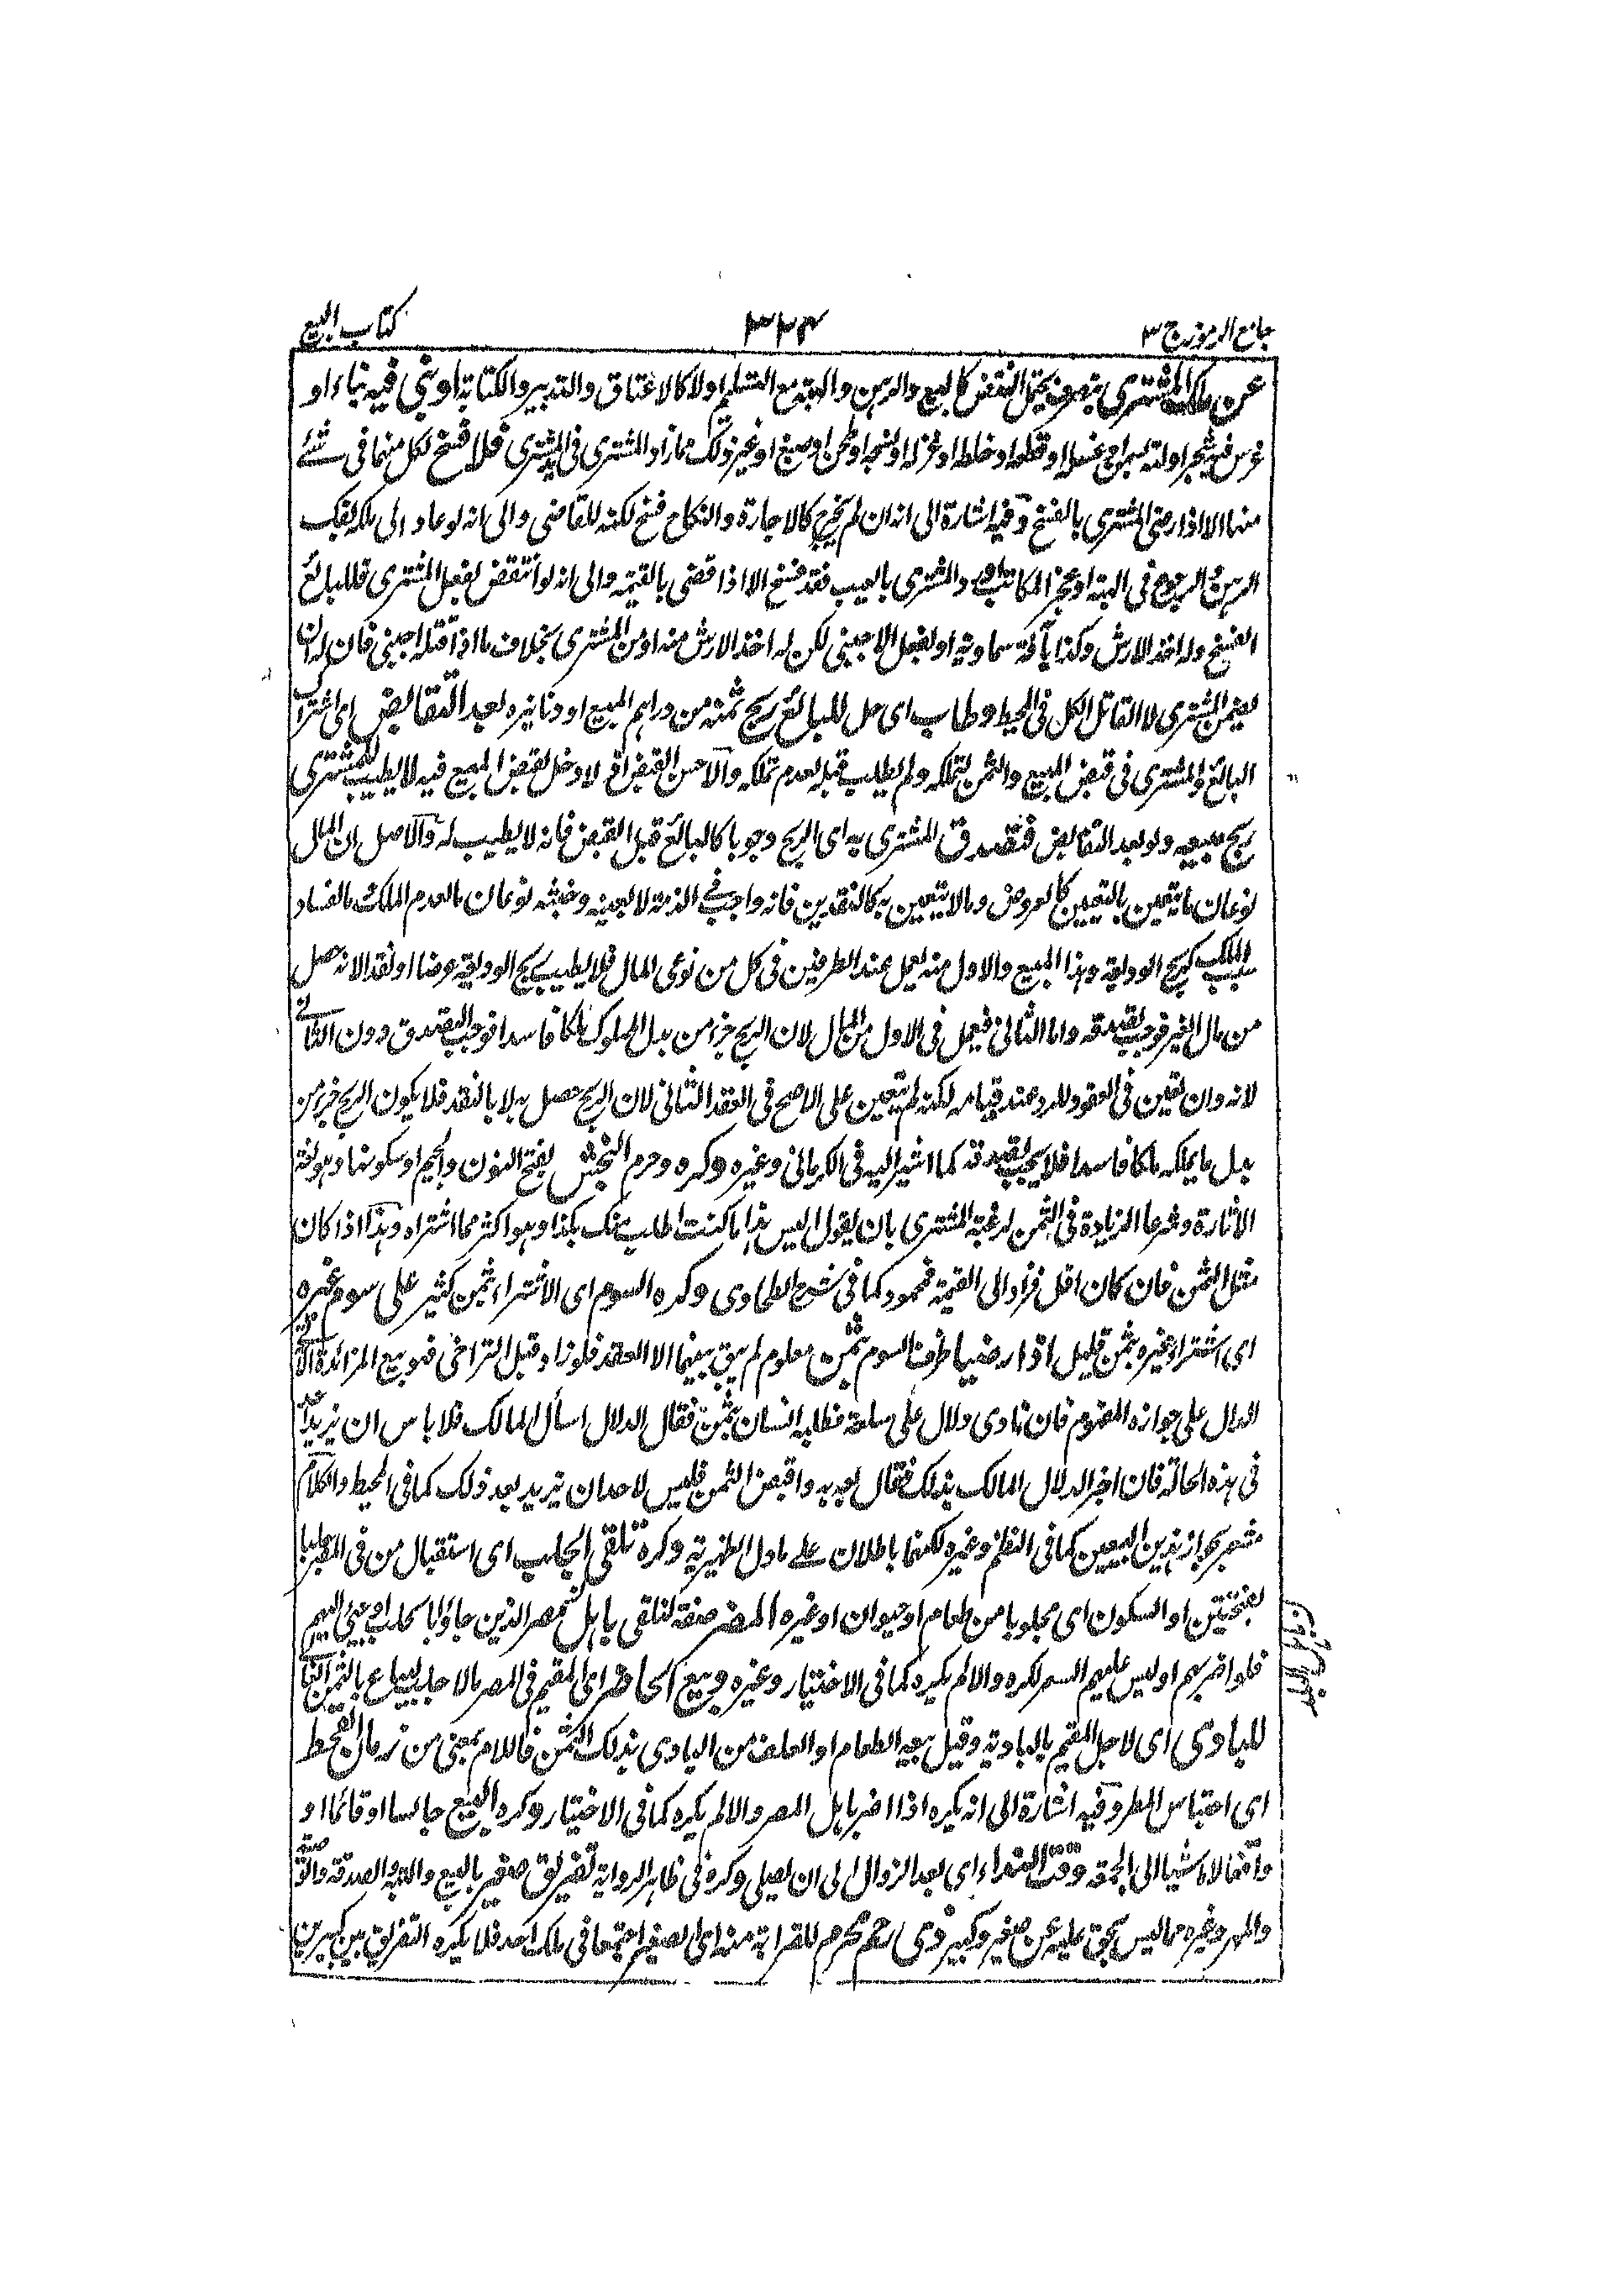 جامع الرموز ج ٣
٣٢٤
كتاب البيع
عن ملك المشتري بتصرف يحتمل النقض كالبيع والرهن والهبة مع التسليم اولا كالاعتاق والتدبير والكتابة او بنى فيه بناء او
غرس فيه شجرا او لته بسمن او غسله او قطعه او خلطه او غزله او نسجه او طحن او صبغ او غير ذلك مما زاد المشترى فى المشترى فلا فسخ لكل منهما فى شئ
منها الا اذا رضى المشترى بالفسخ وفيه اشارة الى انه ان لم يخرج كالاجارة والنكاح فسخ لكنه للقاضى والى انه لو عاد الى ملكه بفك
الرهن والرجوع فى الهبة او عجز المكاتب او رد المشترى بالعيب فقد فسخ الا اذا قضى بالقيمة والى انه لو انتقض بفعل المشترى فللبائع
الفسخ وله اخذ الارش وكذا بآفة سماوية او بفعل الاجنبى لكن له اخذ الارش منه او من المشترى بخلاف ما اذا قتله اجنبى فان له ان
يضمن المشترى لا القاتل الكل فى المحيط وطاب اى حل للبائع ربح ثمنه من دراهم المبيع او دنانيره بعد التقابض اى اشتراك
البائع والمشترى فى قبض المبيع والثمن لتملكه ولم يطلب قبله لعدم تملكه والاحسن القبض اذ لا دخل لقبض المبيع فيه لا يطيب للمشترى
ربح مبيعه ولو بعد التقابض فتصدق المشترى به اى الربح وجوبا كالبائع قبل القبض فانه لا يطيب له والاصل ان المال
نوعان ما يتعين بالتعيين كالعروض وما لا يتعين به كالنقدين فانه واجب فى الذمة لا بعينه وخبثه نوعان ما لعدم الملك ما لفساد
الملك كربح الوديعة وهذا المبيع والاول منه يعمل عند الطرفين فى كل من نوعى المال فلا يطيب ربح الوديعة عوضا او نقدا لانه حصل
من مال الغير فوجب تصدقه واما الثانى فيعمل فى الاول من المال لان الربح جزء من بدل المملوك ملكا فاسدا فوجب التصدق دون الثانى
لانه وان تعين فى العقود للرد عند قيامه لكنه لم يتعين على الاصح فى العقد الثانى لان الربح حصل به لا بالنقد فلا يكون الربح جزء من
بدل ما يملكه ملكا فاسدا فلا يجب تصدقه كما اشير اليه فى الكرمانى وغيره وكره وحرم النجش بفتح النون والجيم او سكونها وهو لغة
الاثارة وشرعا الزيادة فى الثمن لرغبة المشترى بان يقول اليس هذا ما كنت اطلب منك بكذا وهو اكثر مما اشتراه وهذا اذا كان
مثل الثمن فان كان اقل فزاد الى القيمة فمحمود كما فى شرح الطحاوى وكره السوم اى الاشتراء بثمن كثير على سوم غيره
اى اشتراء غيره بثمن قليل اذا رضيا طرفا السوم بثمن معلوم لم يبق بينهما الا العقد فلو زاد قبل التراضى فهو بيع المزائدة
الدال على جوازه المفهوم فان نادى دلال على سلعة فطلبه انسان بثمن فقال الدلال اسأل المالك فلا باس ان يزيد احد
فى هذه الحالة فان اخبر الدلال المالك بذلك فقال بعه به واقبض الثمن فليس لاحد ان يزيد بعد ذلك كما فى المحيط والكلام
مشعر بجواز هذين البيعين كما فى النظم وغيره لكنهما باطلان على ما دل الظهيرية وكره تلقى الجلب اى استقبال من فى المصر جلبا
بفتحتين او السكون اى مجلوبا من طعام او حيوان او غيره المضر صفة لتلقى باهل مصر الذين جاؤا بالجلب او يجيئ اليهم
فلو اضر بهم او لبس عليهم السعر لكره والا لم يكره كما فى الاختيار وغيره وبيع الحاضر اى المقيم فى المصر مالا جلب ليباع بالثمن
للبادى اى لاجل المقيم بالبادية وقيل بيعه الطعام او العلف من البادى بذلك الثمن فاللام بمعنى من زمان القحط
اى احتباس المطر وفيه اشارة الى انه يكره اذا اضر باهل المصر والا لم يكره كما فى الاختيار وكره البيع جالسا او قائما او
واقفا لا ماشيا الى الجمعة وقت النداء اى بعد الزوال الى ان يصلى وكره فى ظاهر الرواية تفريق صغير بالبيع والهبة والصدقة والوصية
والمهر وغيره مما ليس بحق عليه عن صغير وكبير ذى رحم محرم للقرابة منه اى الصغير اجتمعا فى ملك احد فلا يكره التفريق بين كبيرين